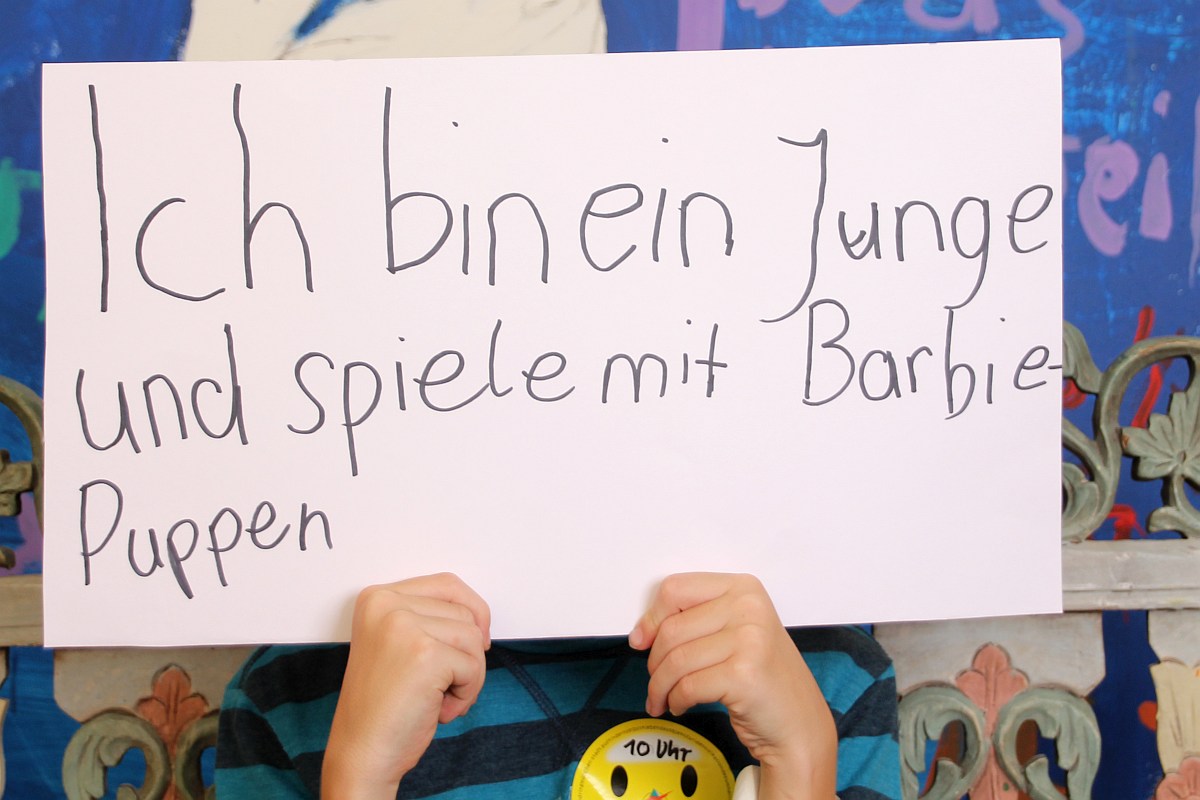 Ich bin ein Junge
und spiele mit Barbie-
Puppen
10 Uhr